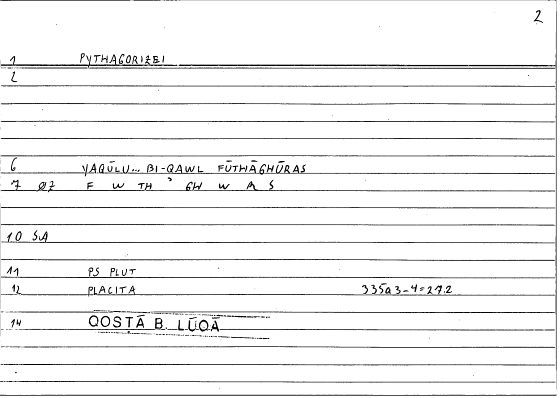 2
1 PYTHAGORIZEI
2
6 YAQŪLU... BI-QAWL FŪTHĀGHŪRAS
7 Ø7 F W TH ʾ GH W R S
10 SA
11 PS PLUT
12 PLACITA 335a3-4=27.2
14 QOSṬĀ B. LŪQĀ